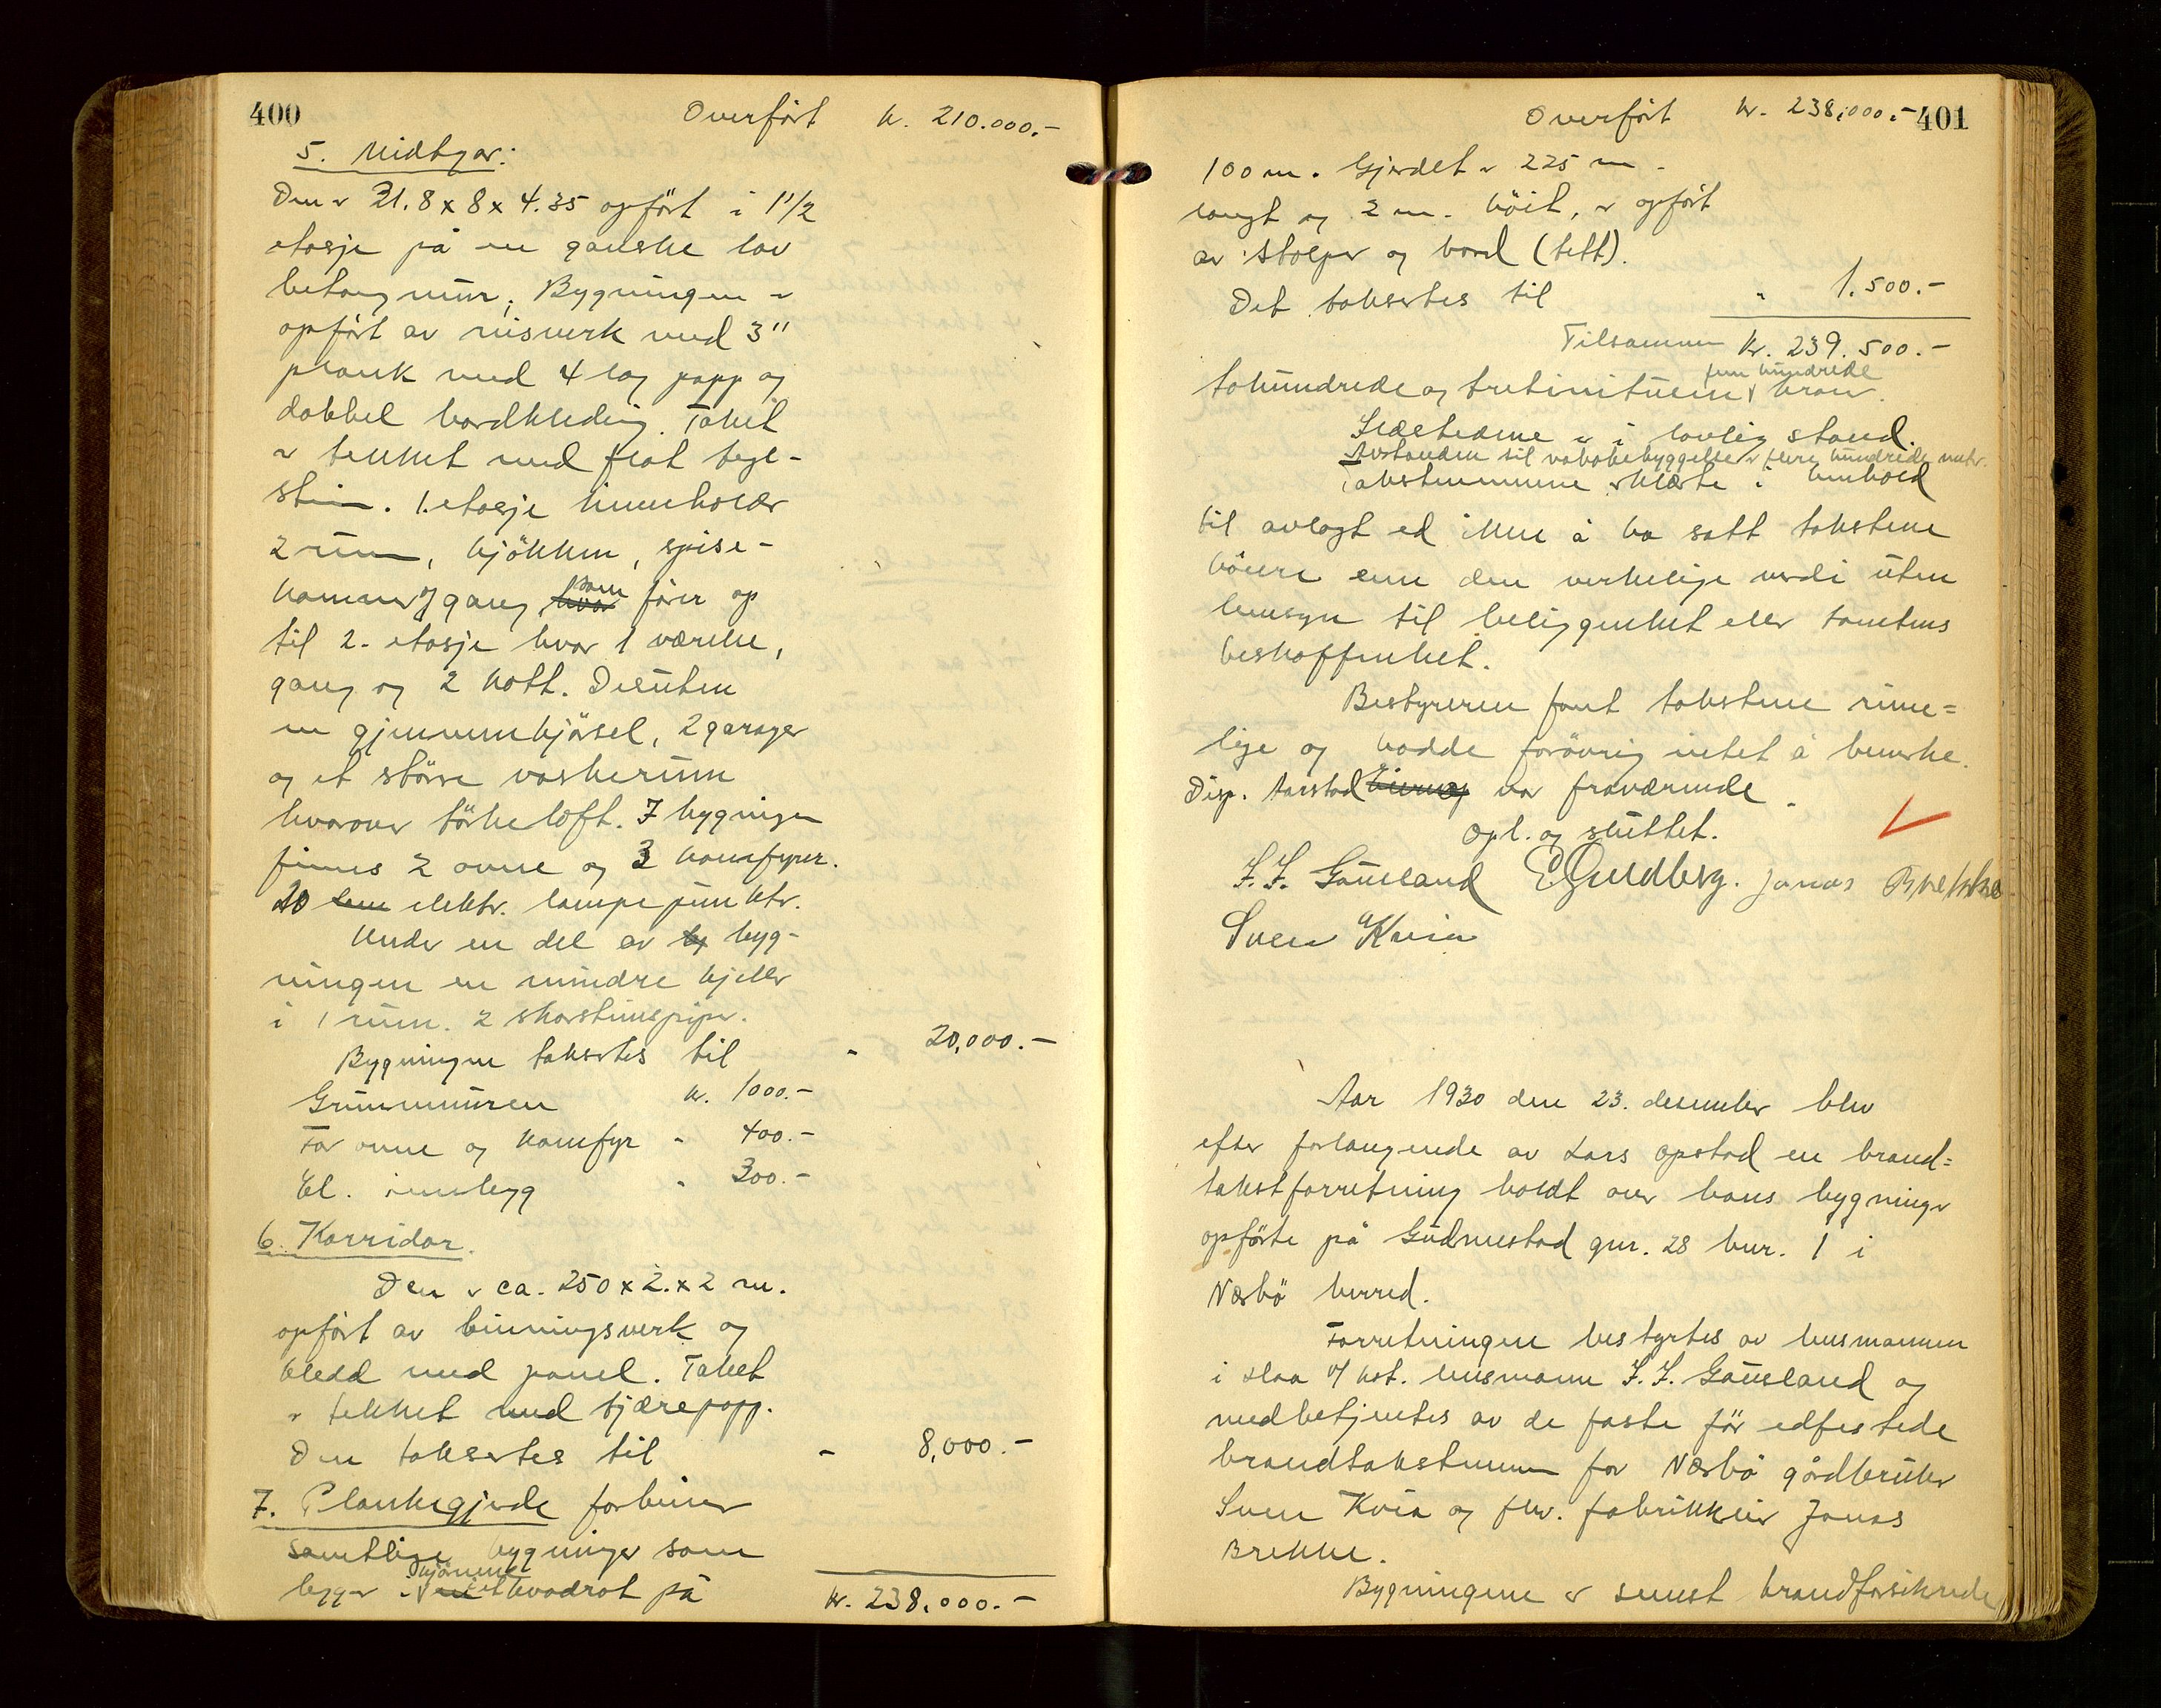 400
Overført kr. 210.000.-
5. Midtgar:
Den er 21.8 x 8 x 4.35 opført i 1 1/2
etasje på en ganske lav
betongmur. Bygningen er
opført av reisverk med 3"
plank med 4 lag papp og
dobbel bordkleding. Taket
er tekket med flat tegl-
stein. 1. etasje inneholder
2 rum, kjøkken, spise-
kammer og gang, hvor som fører op
til 2. etasje hvor 1 værelse,
gang og 2 kott. Desuten
en gjennemkjørsel, 2 garager
og et større vaskerum
hvorover tørkeloft. I bygningen
finnes 2 ovne og 3 komfyrer.
20 lam elektr. lampepunkter.
Under en del av by byg-
ningen en mindre kjeller
i 1 rum. 2 skorstenspiper.
Bygningen takseres til " 20,000.-
Grunnmuren kr. 1000.-
For ovne og komfyr " 400.-
El. innlegg " 300.-
6. Korridor.
Den er ca. 250 x 2. x 2 m.
opført av binningsverk og
kledd med panel. Taket
er tekket med tjærepapp.
Den takseres til " 8,000.-
7. Plankegjerde forbinner
samtlige bygninger som
ligger i skjønnet kvadrat på
kr. 238,000.-
401
Overført kr. 238,000.-
100 m. Gjerdet er 225 m
langt og 2 m. høit, er opført
av stolper og bord (tett).
Det takseres til " 1.500.-
Tilsammen kr. 239.500.-
fem hundrede
tohundrede og trettinitusen kroner.
Ildstedene er i lovlig stand.
Avstanden til nabobebyggelse er flere hundrede meter.
Takstmennene erklærte i henhold
til avlagt ed ikke å ha satt takstene
høiere enn den verkelige verdi uten
hensyn til beliggenhet eller tomtens
beskaffenhet.
Bestyreren fant takstene rime=
lige og hadde forøvrig intet å bemerke.
Disp. Aarstad var fraværende.
Opl. og sluttet.
J. J. Gausland E Guldberg. Jonas Brekke
Sven Kvia
Aar 1930 den 23. desember blev
efter forlangende av Lars Opstad en brand=
takstforretning holdt over hans bygninger
opførte på Gudmestad gnr. 28 bnr. 1 i
Nærbø herred.
Forretningen bestyrtes av lensmannen
i Haa v/ kst. lensmann J. J. Gausland og
medbetjentes av de faste før edfestede
brandtakstmenn for Nærbø gårdbruker
Sven Kvia og fhv. fabrikkeier Jonas
Brekke.
Bygningene er senest brandforsikrede